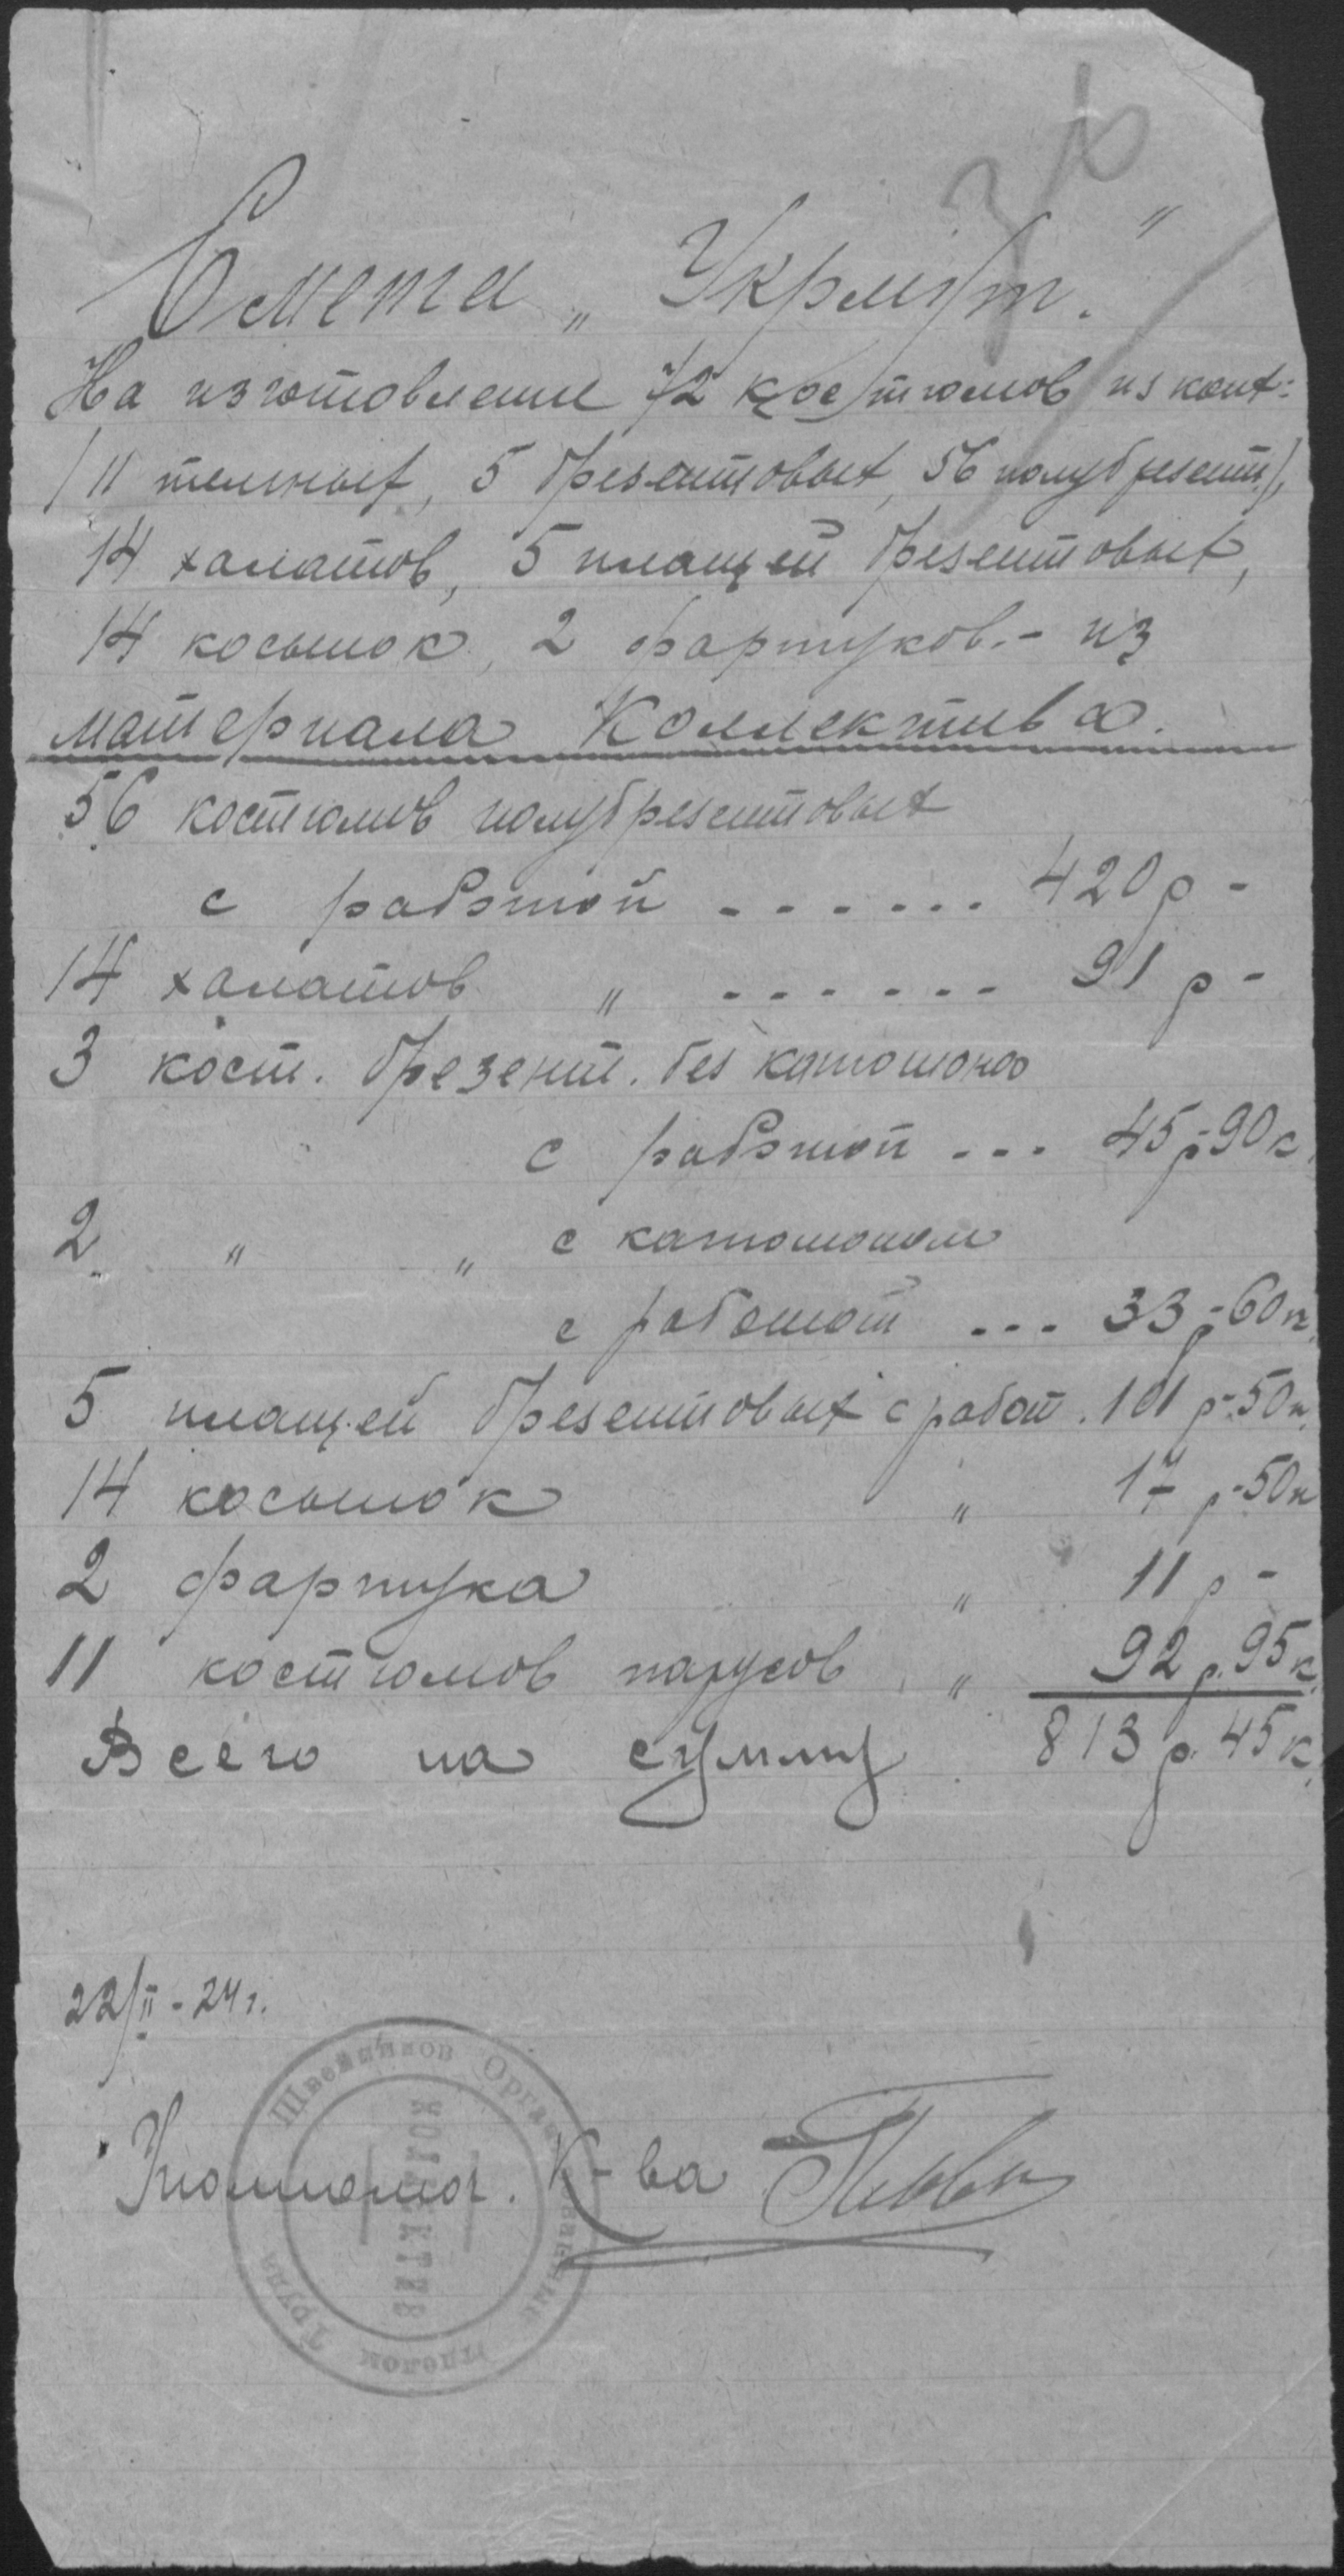 Смета „Укрмут."
На изготовление 72 костюмов из них:
/11 тельных, 5 брезентовых, 56 полубрезент/,
14 халатов, 5 плащей брезентовых,
14 косынок, 2 фартуков. - из
материала Коллектива.
56 костюмов полубрезентовых
с работой - - - - - - - 420 р -
14 халатов " - - - - - - - 91 р -
3 кост. брезент. без капюшона
с работой - - - 45 р-90 к.
2 " " с капюшоном
с работой - - - 33 р-60 к.
5 плащей брезентовых с работ. 101 р-50 к.
14 косынок " 17 р-50 к
2 фартука " 11 р -
11 костюмов парусов. " 92 р. 95 к.
Всего на сумму 813 р. 45 к.
22/II - 24 г.
К-ва
Швейников Орга
КОЛЛЕКТИВ
Труда